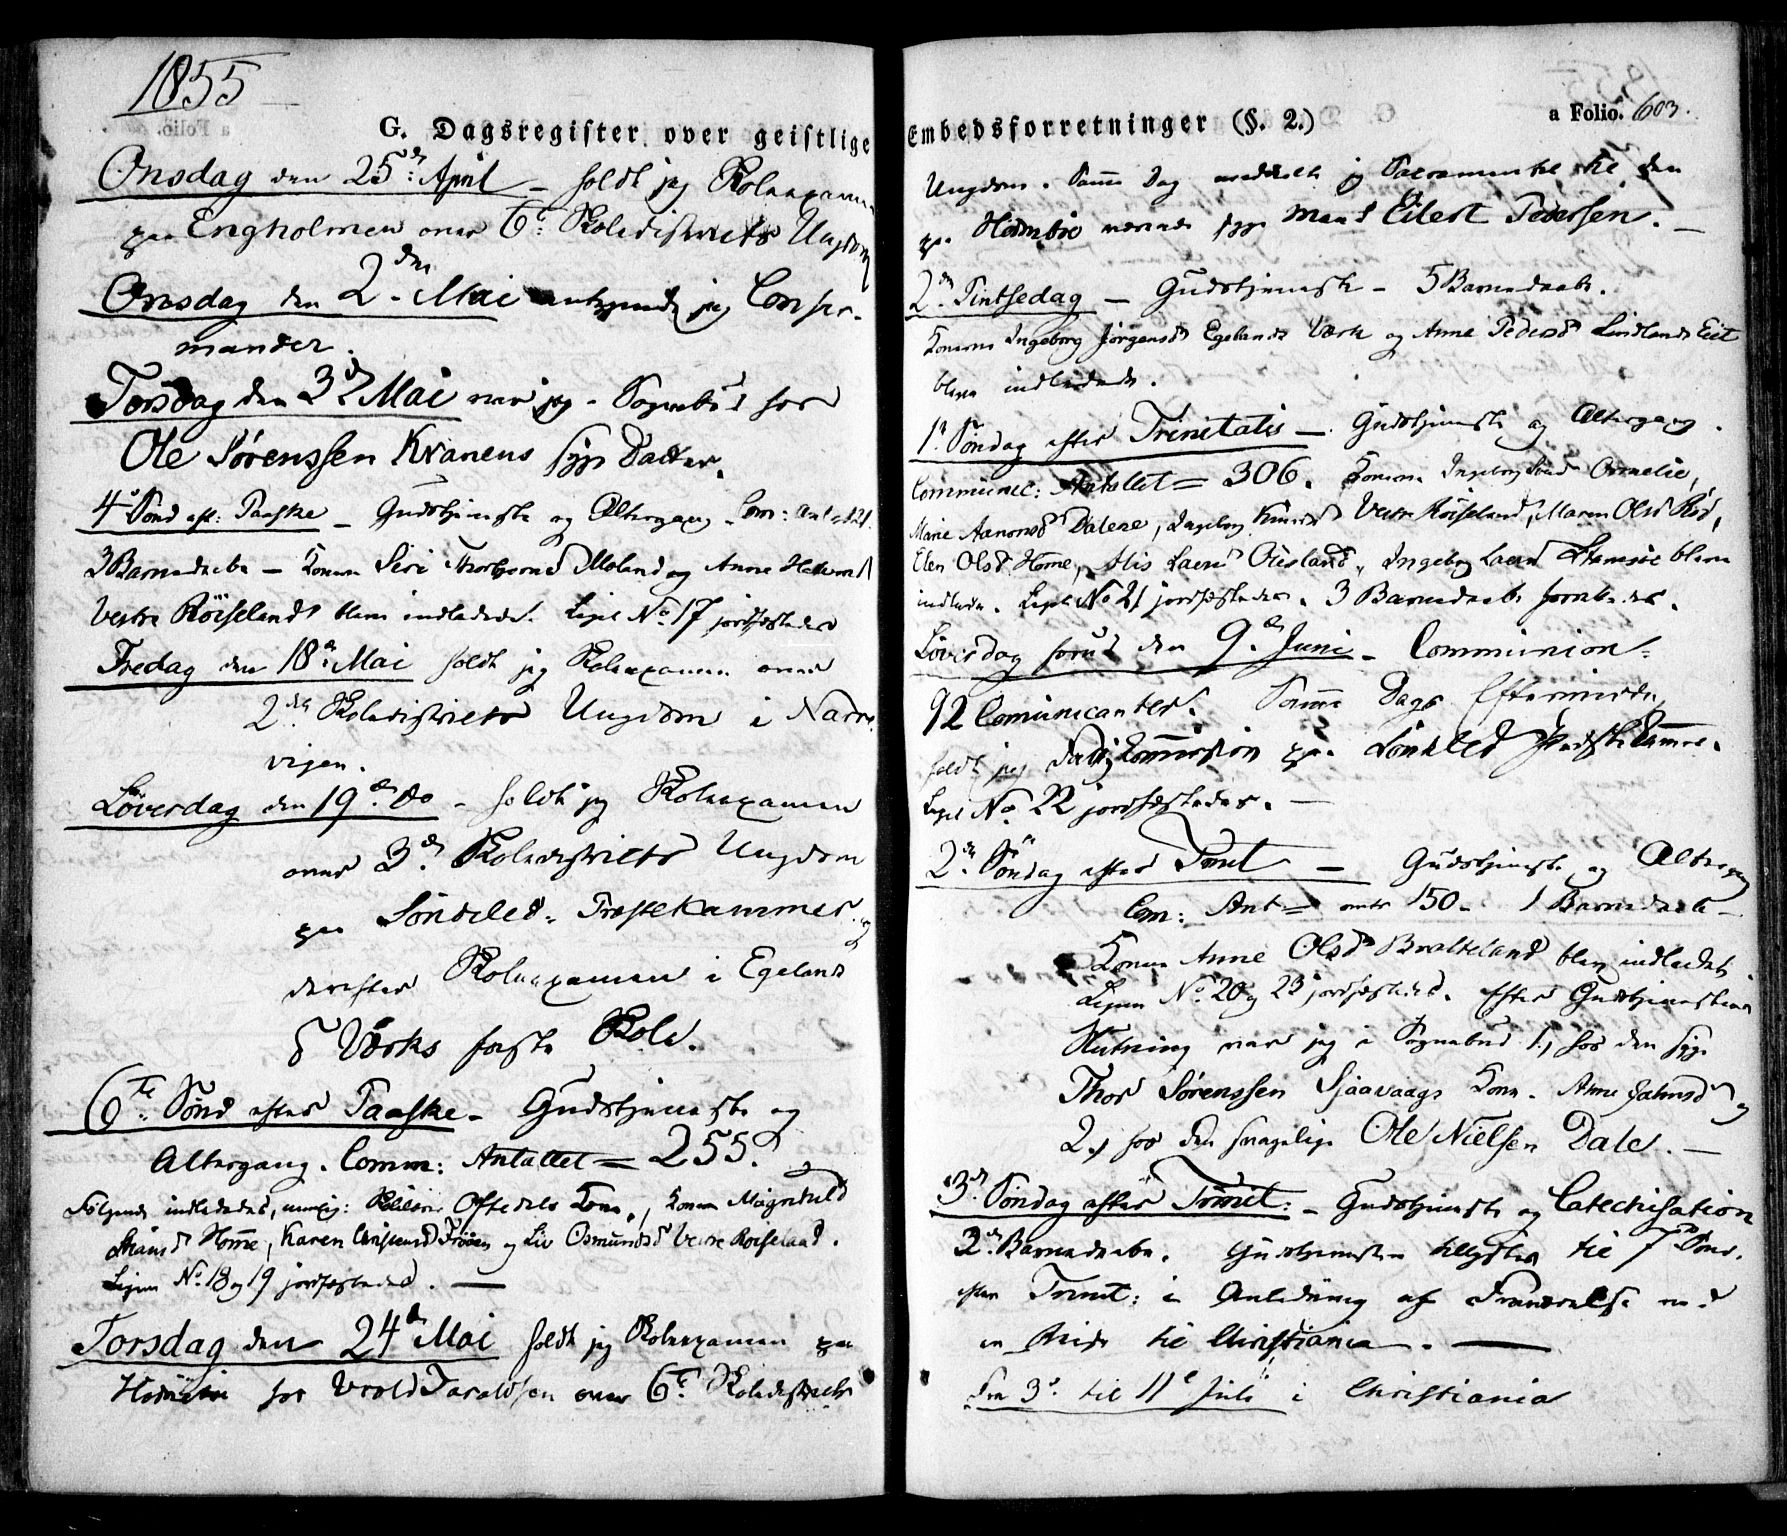 1855
G. Dagsregister over geistlige
Onsdag den 25de April – holdt jeg Skoleexamen
paa Engholmen over 6te Skoledistricts Ungdom
Onsdag den 2den Mai antegnede jeg Confir-
mander.
Torsdag den 3die Mai var jeg i Sognebud hos
Ole Sørenssen Kranens syge Datter.
4de Sønd eft: Paaske – Gudstjeneste og Altergang – Com: Ant = 121.
3 Barnedaabe – Konen Siri Thorbjørnsd Moland og Anne
Vestre Röiseland blev indledede. Liget No 17 jordfæstedes
Fredag den 18de Mai holdt jeg Skoleexamen over
2den Skoledistricts Ungdom i Narre
vigen.
Löverdag den 19de do – holdt jeg Skoleexamen
over 3die Skoledistricts Ungdom
paa Söndeled Præstekammer og
derefter Skoleexamen i Egelands
Værks faste Skole.
6te Sønd efter Paaske – Gudstjeneste og
Altergang. Comm: Antallet = 255.
Følgende indlededes, nemlig: Oftedals Kone, Konen Magnhild
Homme, Karen Christensd Frøen og Liv Osmundsd Vestre Roiseland.
Ligene No 18 og 19 jordfæstedes. —
Torsdag den 24de Mai holdt jeg Skoleexamen paa
for Vrold Taraldsen over 6te Skoledistricts
Embedsforretninger (§. 2.)
a Folio. 603.
Ungdom. Samme Dag meddelte jeg Sacramentet til den
paa værende syge Mand Eilert Pedersen. —
2den Pintsedag – Gudstjeneste – 5 Barnedaabe.
Konerne Ingeborg Jörgensd Egelands Værk og Anne Pedersd Lindlands Eie
bleve indledede.
1ste Söndag efter Trinitatis – Gudstjeneste og Altergang.
Communic: Antallet = 306. Konerne Ingeborg
Marie Aanonsd Dalene, Ingeborg Knudsd Vestre Röiseland, Maren Olsd Röd,
Elen Olsd Homme, Larsd Ingeborg Larsd bleve
indledede. Liget No 21 jordfæstedes. 3 Barnedaabe
Löverdag forud den 9de Juni – Communion –
92 Comunicanter. Samme Dags Eftermiddag
holdt jeg Commission paa Söndeled Præstekammer.
Liget No 22 jordfæstedes. —
2den Söndag efter Trinit – Gudstjeneste og Altergang
Com: Ant = over 150 – 1 Barnedaab –
Konen Anne Olsd Bratteland blev indledet.
Ligene No 20 og 23 jordfæstedes. Efter Gudstjenestens
Slutning var jeg i Sognebud 1, hos den syge
Thor Sørenssen Sjaavaags Kone Anne og
2, hos den svagelige Ole Nielsen Dale. —
3die Söndag efter Trinit: – Gudstjeneste og Catechisation
2 Barnedaabe. Gudstjenesten tillystes til 7de Sønd.
efter Trinit: i Anledning af Fraværelse ved
en Reise til Christiania. —
Fra 3de til 11te Juli i Christiania